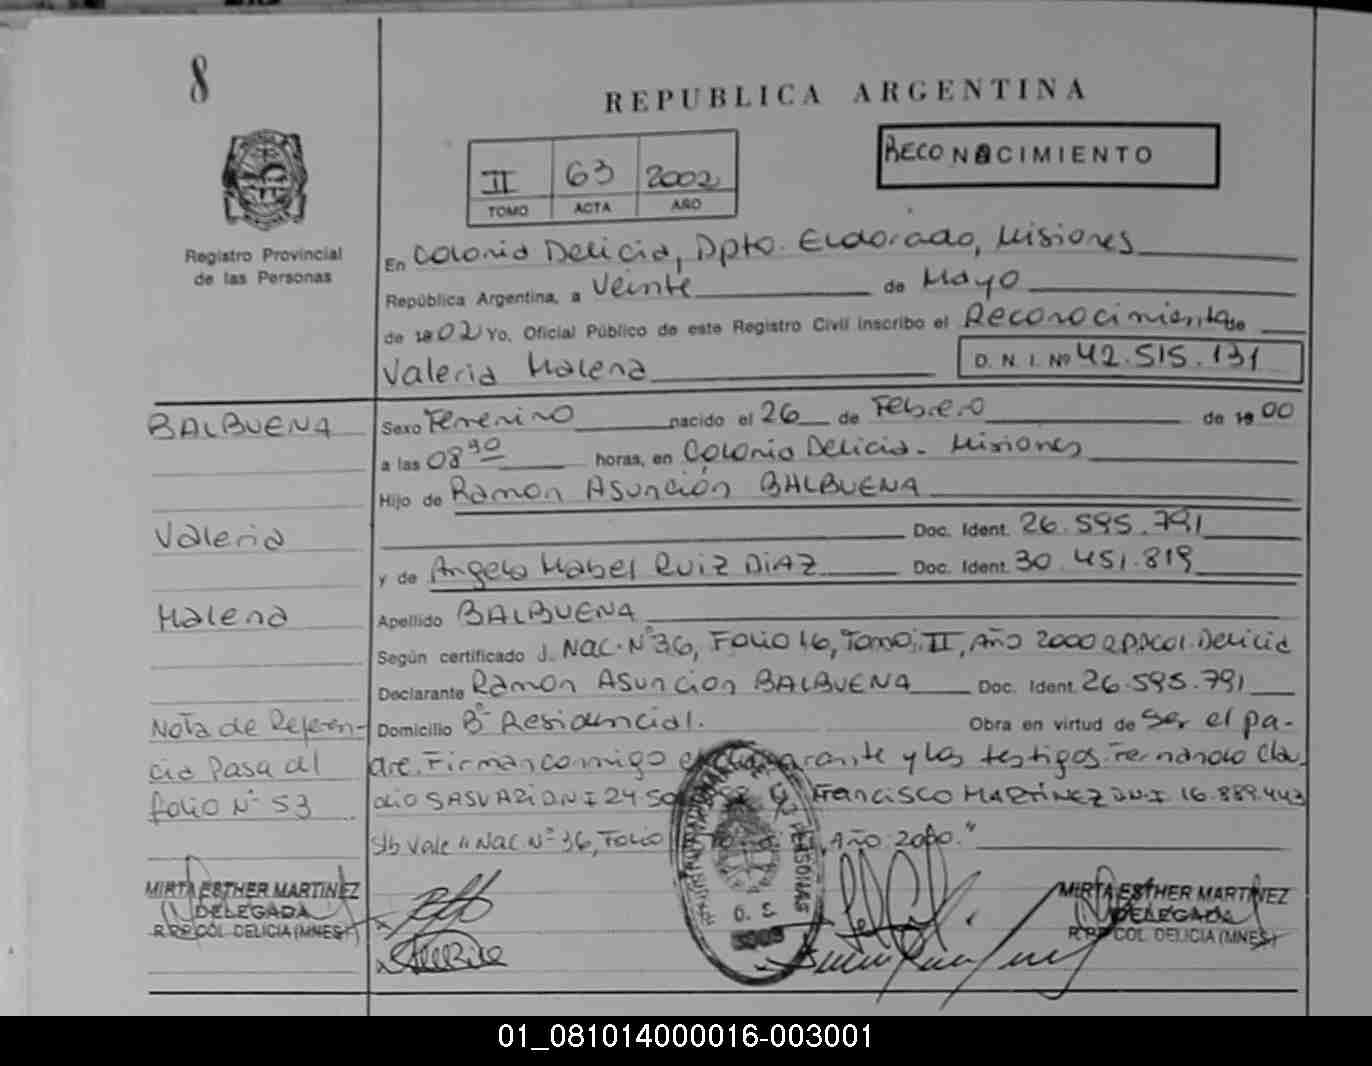 8
REPUBLICA ARGENTINA
II 63 2002
TOMO ACTA AÑO
RECONOCIMIENTO
Registro Provincial
de las Personas
En Colonia Delicia, Dpto. Eldorado, Misiones
República Argentina, a Veinte de Mayo
de 1902 Yo, Oficial Público de este Registro Civil inscribo el Reconocimiento de
Valeria Malena D. N. I. Nº 42.515.131
BALBUENA
Sexo Femenino nacido el 26 de Febrero de 1900
a las 08 horas, en Colonia Delicia - Misiones
Hijo de Ramon Asunción BALBUENA
Valeria
Doc. Ident. 26.595.791
y de Angela Mabel RUIZ DIAZ Doc. Ident. 30.451.819
Malena
Apellido BALBUENA
Según certificado J. NAC. Nº 36, Folio 16, Tomo: II, Año 2000 Delicia
Declarante Ramon Asuncion BALBUENA Doc. Ident. 26.595.791
Nota de Referen-
cia Pasa al
folio Nº 53
Domicilio Bº Residencial. Obra en virtud de Ser el pa-
dre. Firman conmigo y los testigos: Fernando Clau-
dio D.N.I 24.50 Francisco MARTÍNEZ D.N.I 16.889.443
s/b Vale "Nac. Nº 36, Folio , Año 2000."
MIRTA ESTHER MARTINEZ
DELEGADA
R.P.P COL. DELICIA (MNES)
DE LAS PERSONAS
MIRTA ESTHER MARTINEZ
DELEGADA
R.P.P COL. DELICIA (MNES)
01_081014000016-003001